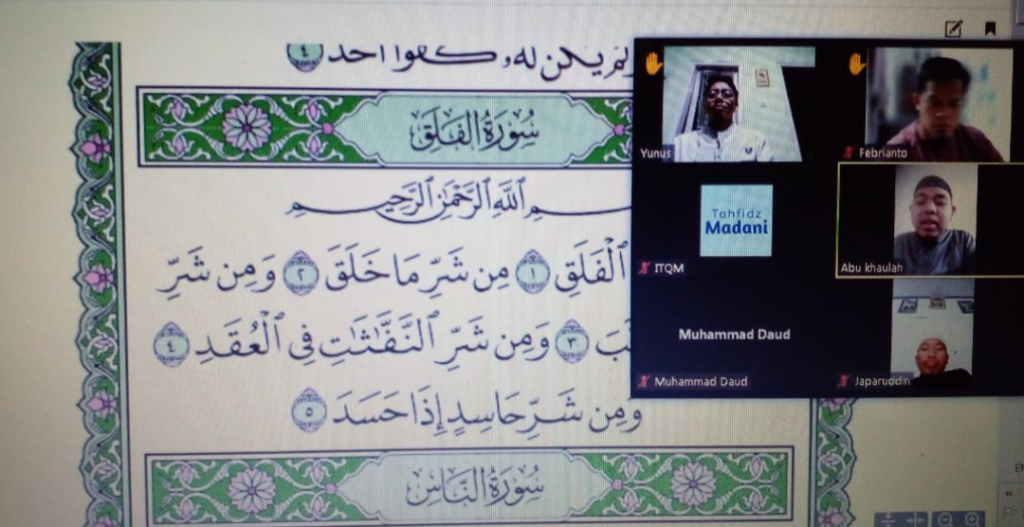 لم يكن له كفوا احد ٤
سُورَةُ الفَلَقِ
ٱللَّهِ ٱلرَّحْمَٰنِ ٱلرَّحِيمِ
ٱلْفَلَقِ ١ مِن شَرِّ مَا خَلَقَ ٢ وَمِن شَرِّ
٣ وَمِن شَرِّ ٱلنَّفَّٰثَٰتِ فِى ٱلْعُقَدِ ٤
وَمِن شَرِّ حَاسِدٍ إِذَا حَسَدَ ٥
سُورَةُ النَّاسِ
Yunus
Febrianto
Tahfidz
Madani
ITQM
Abu khaulah
Muhammad Daud
Muhammad Daud
Japaruddin